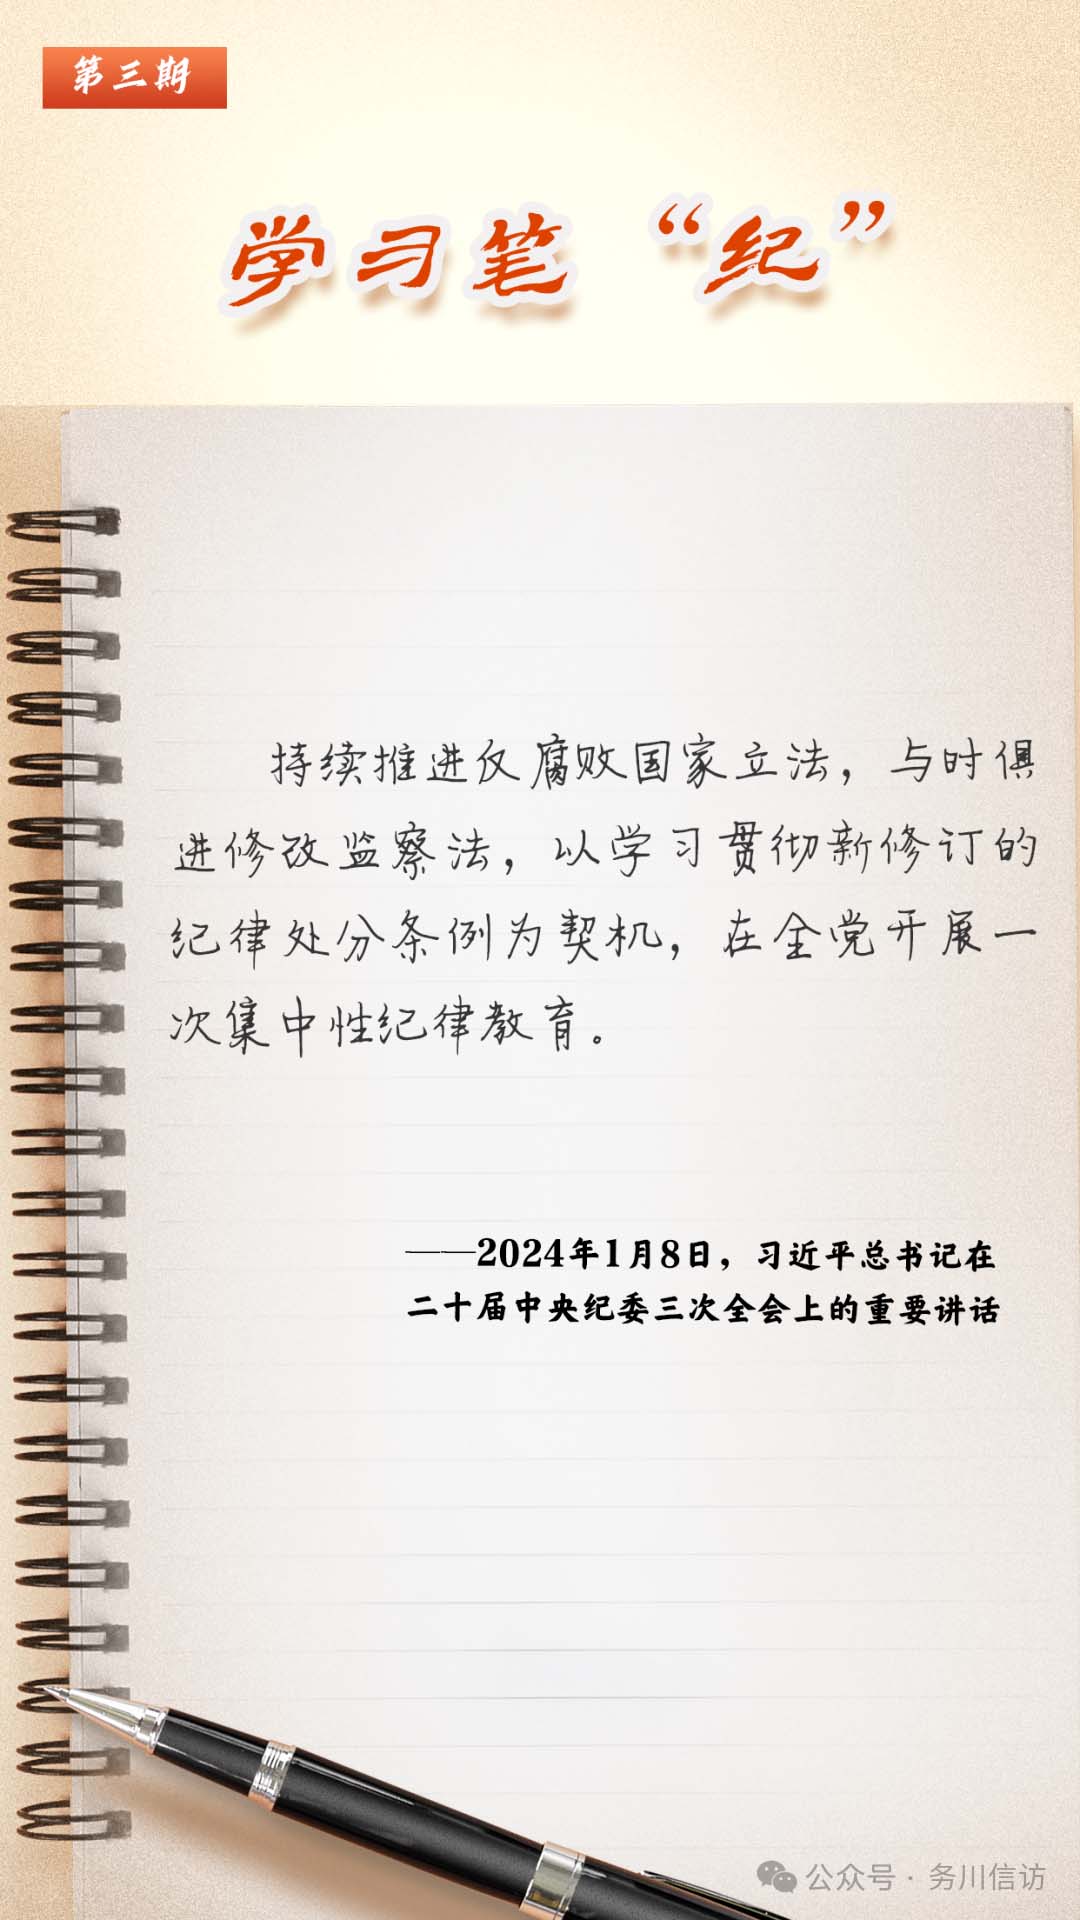 第三期
学习笔“纪”
持续推进反腐败国家立法，与时俱
进修改监察法，以学习贯彻新修订的
纪律处分条例为契机，在全党开展一
次集中性纪律教育。
——2024年1月8日，习近平总书记在
二十届中央纪委三次全会上的重要讲话
公众号·务川信访